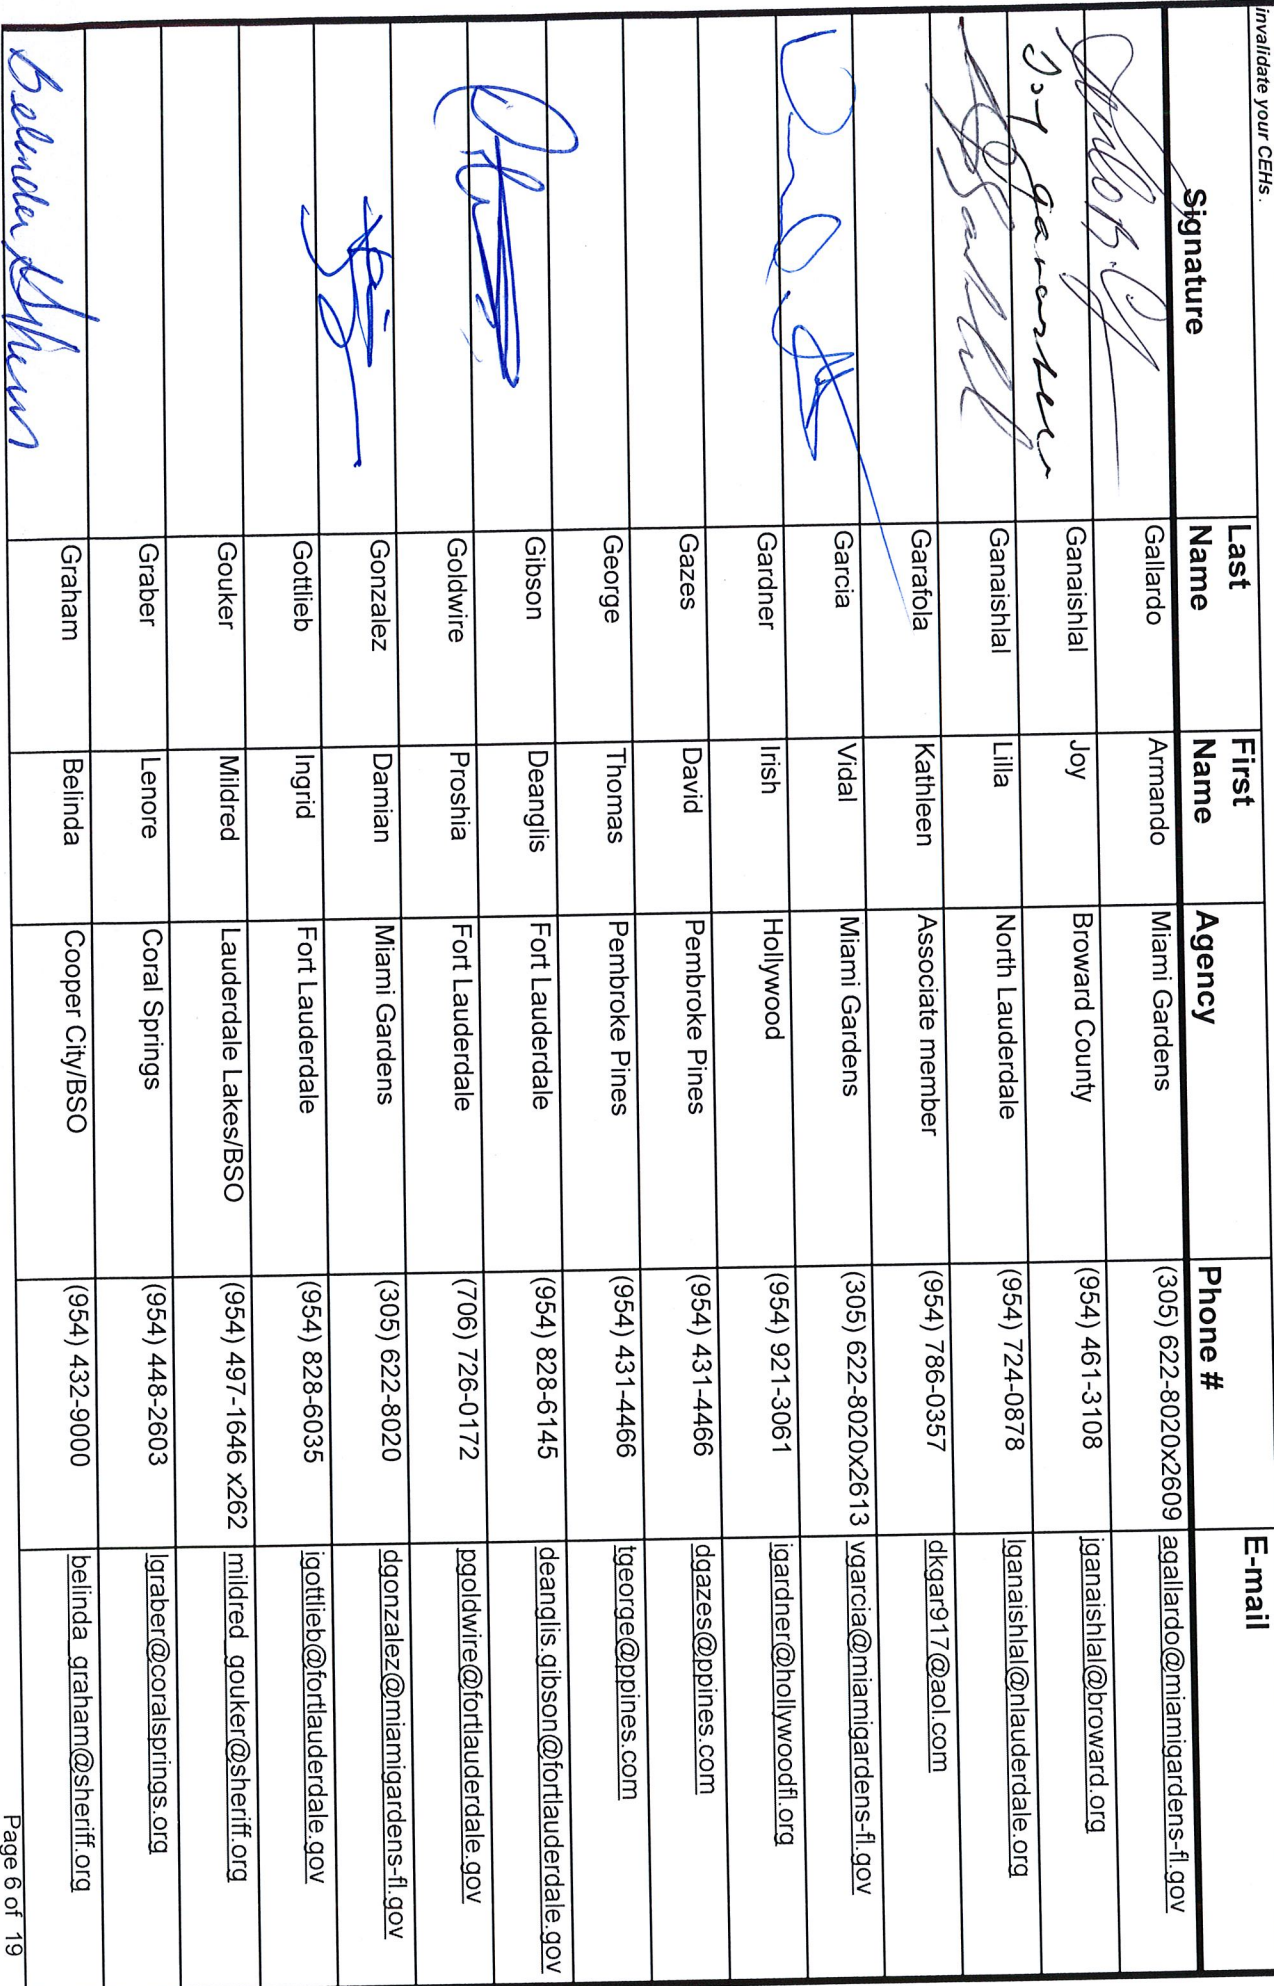 invalidate your CEHs.
Signature Last Name First Name Agency Phone # E-mail
Gallardo Armando Miami Gardens (305) 622-8020x2609 agallardo@miamigardens-fl.gov
Joy Ganaishlal Ganaishlal Joy Broward County (954) 461-3108 jganaishlal@broward.org
Ganaishlal Lilla North Lauderdale (954) 724-0878 lganaishlal@nlauderdale.org
Garafola Kathleen Associate member (954) 786-0357 dkgar917@aol.com
Garcia Vidal Miami Gardens (305) 622-8020x2613 vgarcia@miamigardens-fl.gov
Gardner Irish Hollywood (954) 921-3061 igardner@hollywoodfl.org
Gazes David Pembroke Pines (954) 431-4466 dgazes@ppines.com
George Thomas Pembroke Pines (954) 431-4466 tgeorge@ppines.com
Gibson Deanglis Fort Lauderdale (954) 828-6145 deanglis.gibson@fortlauderdale.gov
Goldwire Proshia Fort Lauderdale (706) 726-0172 pgoldwire@fortlauderdale.gov
Gonzalez Damian Miami Gardens (305) 622-8020 dgonzalez@miamigardens-fl.gov
Gottlieb Ingrid Fort Lauderdale (954) 828-6035 igottlieb@fortlauderdale.gov
Gouker Mildred Lauderdale Lakes/BSO (954) 497-1646 x262 mildred_gouker@sheriff.org
Graber Lenore Coral Springs (954) 448-2603 lgraber@coralsprings.org
Belinda Graham Graham Belinda Cooper City/BSO (954) 432-9000 belinda_graham@sheriff.org
Page 6 of 19